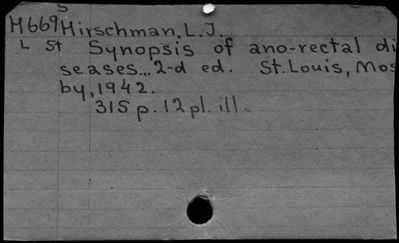 S
M669 Hirschman, L. J.
L St Synopsis of ano-rectal di
seases... 2-d ed. St. Louis, Mos
by, 1942.
315 p. 12 pl. ill.